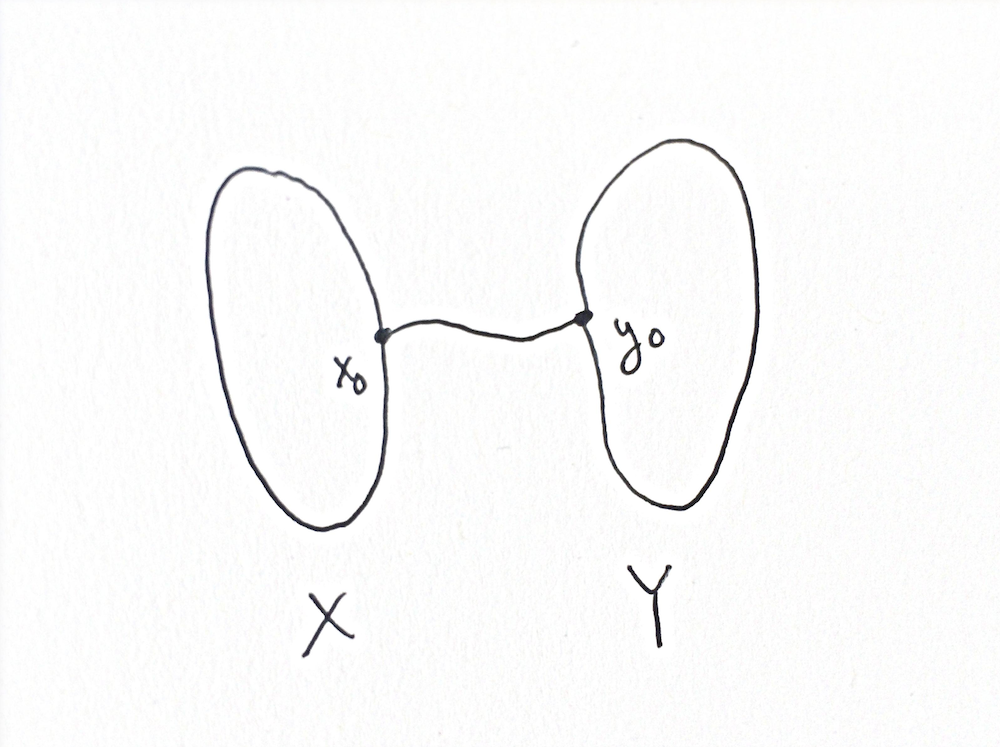 x₀ y₀
X Y